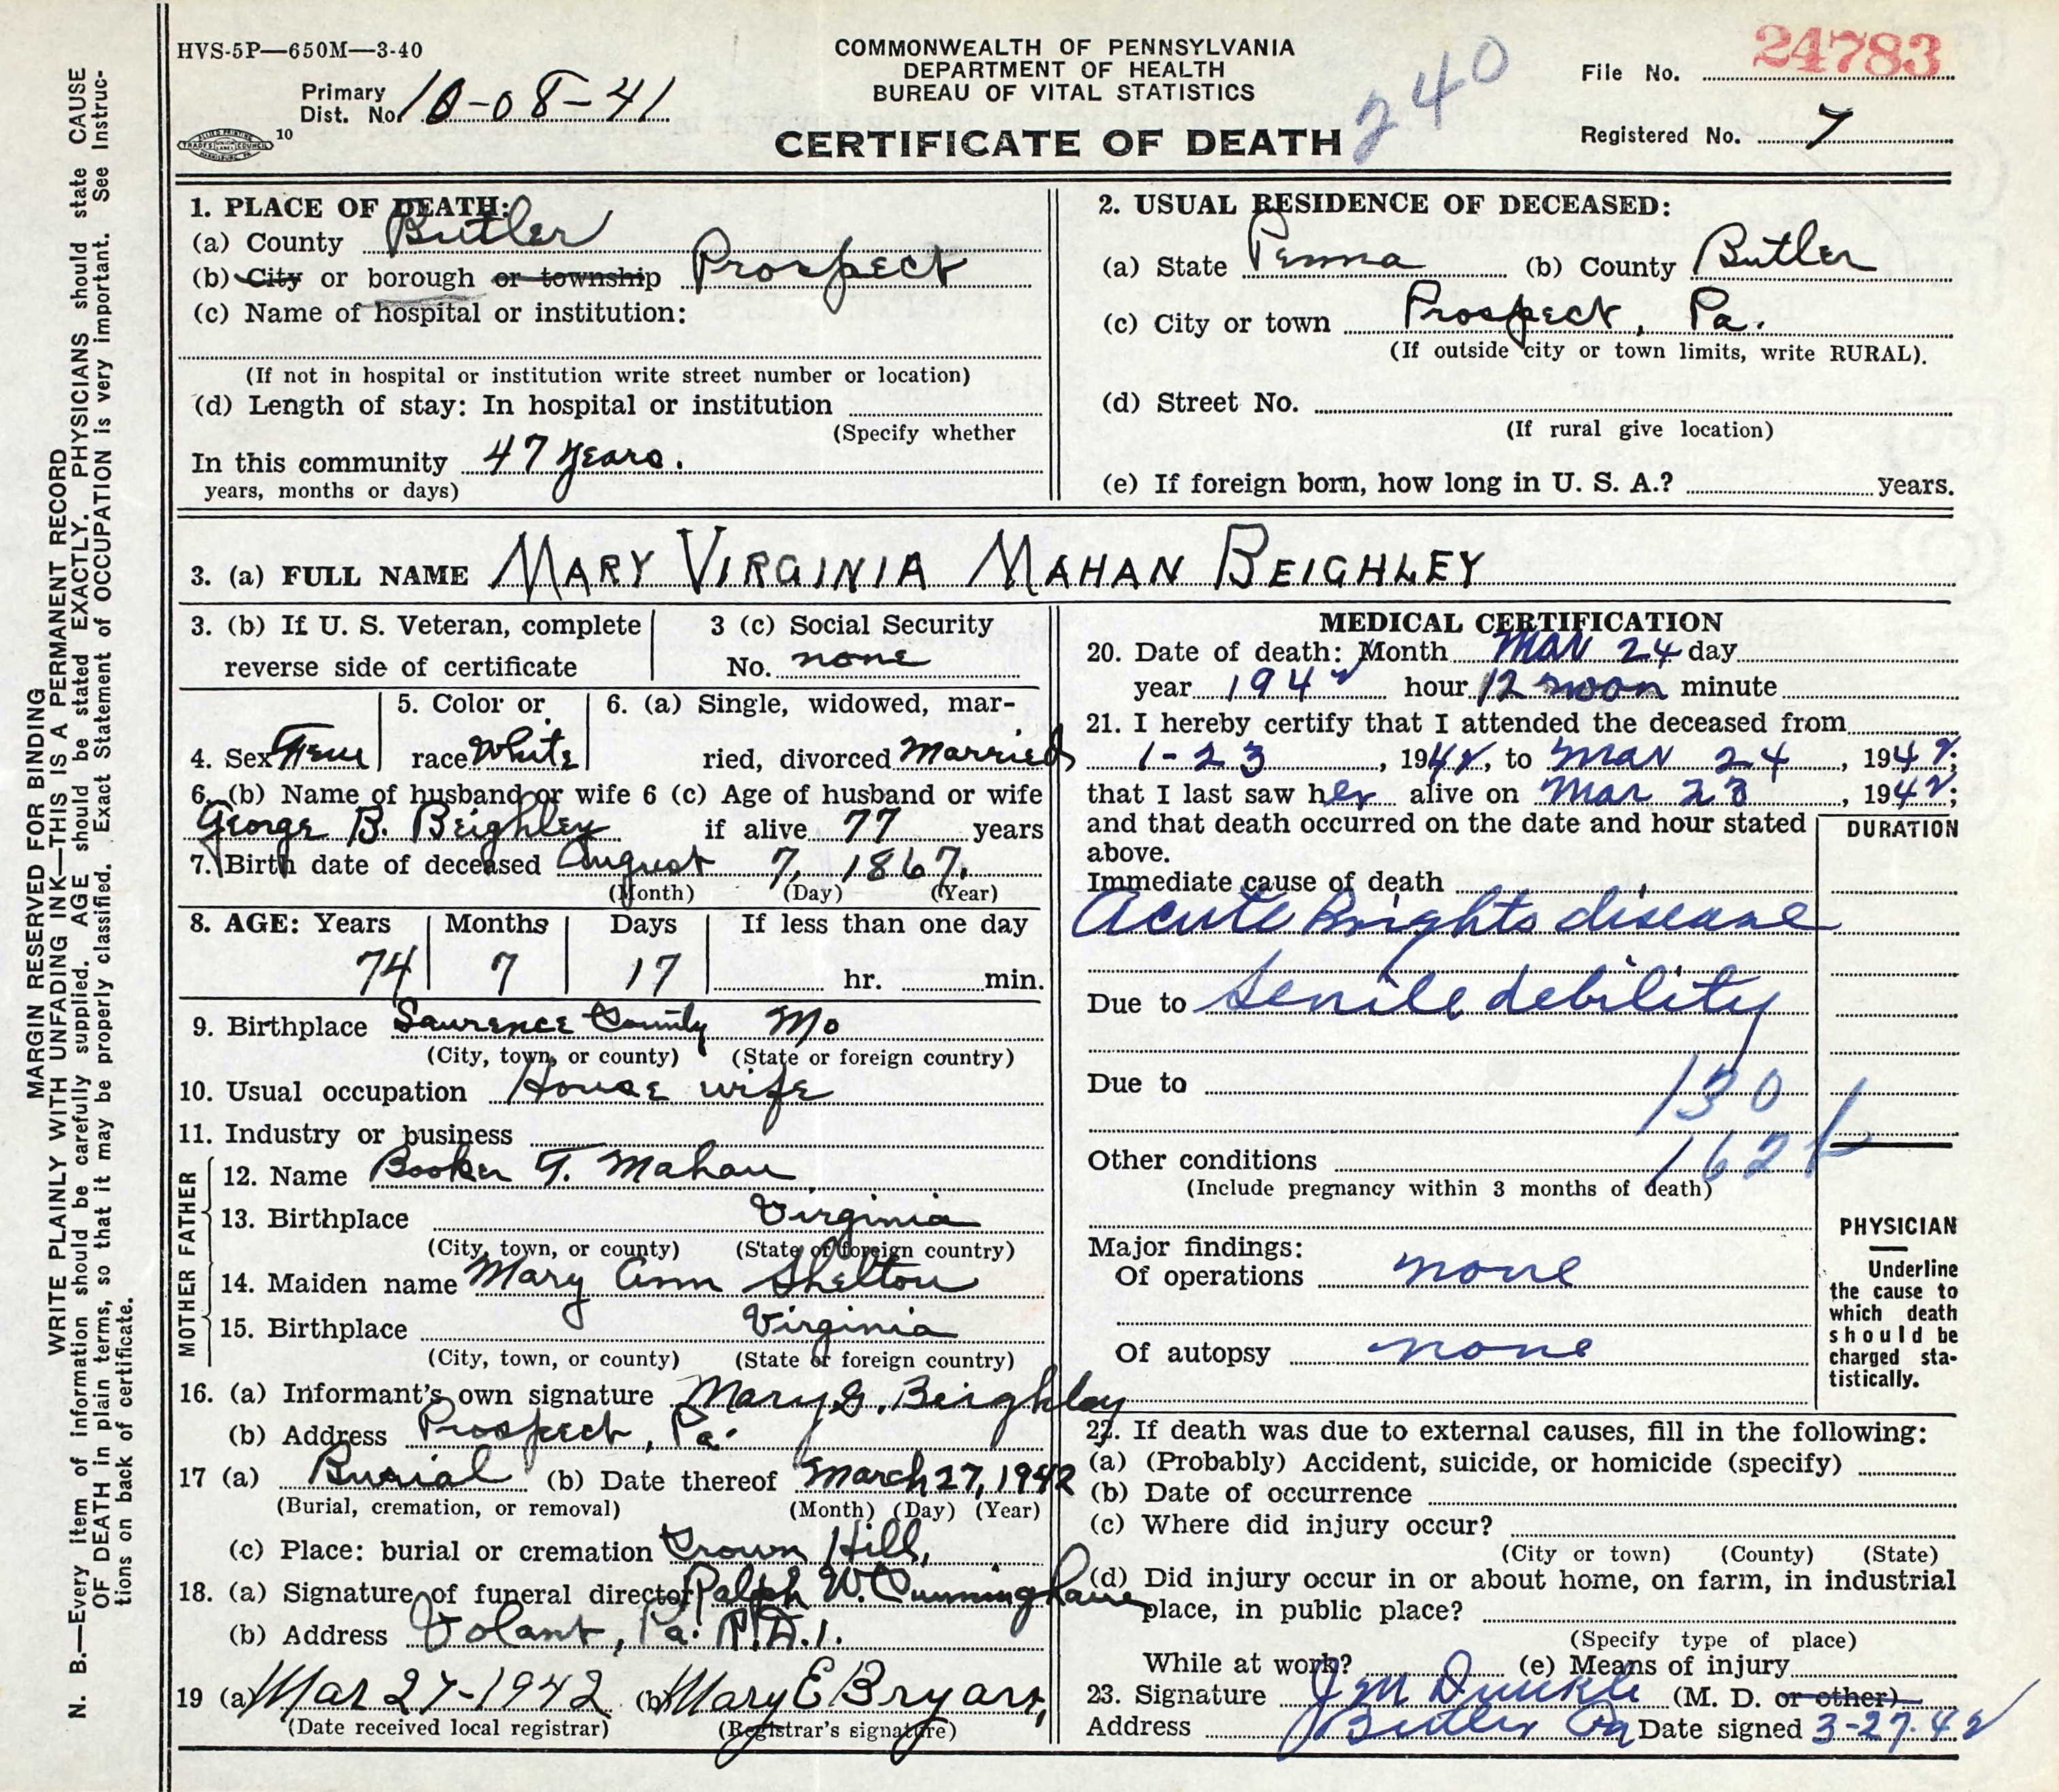 HVS-5P—650M—3-40
COMMONWEALTH OF PENNSYLVANIA
DEPARTMENT OF HEALTH
BUREAU OF VITAL STATISTICS
CERTIFICATE OF DEATH
240
Primary Dist. No. 10-08-41
10
File No. 24783
Registered No. 7
MARGIN RESERVED FOR BINDING
WRITE PLAINLY WITH UNFADING INK—THIS IS A PERMANENT RECORD
N. B.—Every item of information should be carefully supplied. AGE should be stated EXACTLY. PHYSICIANS should state CAUSE
OF DEATH in plain terms, so that it may be properly classified. Exact Statement of OCCUPATION is very important. See Instruc-
tions on back of certificate.
1. PLACE OF DEATH:
(a) County Butler
(b) City or borough or township Prospect
(c) Name of hospital or institution:
(If not in hospital or institution write street number or location)
(d) Length of stay: In hospital or institution
(Specify whether
In this community 47 years.
years, months or days)
2. USUAL RESIDENCE OF DECEASED:
(a) State Penna (b) County Butler
(c) City or town Prospect, Pa.
(If outside city or town limits, write RURAL).
(d) Street No.
(If rural give location)
(e) If foreign born, how long in U. S. A.? years.
3. (a) FULL NAME MARY VIRGINIA MAHAN BEIGHLEY
3. (b) If U. S. Veteran, complete
reverse side of certificate
3 (c) Social Security
No. none
4. Sex Fem
5. Color or
race White
6. (a) Single, widowed, mar-
ried, divorced Married
6. (b) Name of husband or wife 6 (c) Age of husband or wife
George B. Beighley if alive 77 years
7. Birth date of deceased August 7, 1867.
(Month) (Day) (Year)
8. AGE: Years Months Days If less than one day
74 7 17 hr. min.
9. Birthplace Lawrence County Mo
(City, town, or county) (State or foreign country)
10. Usual occupation House wife
11. Industry or business
FATHER
12. Name Booker T. Mahan
13. Birthplace Virginia
(City, town, or county) (State or foreign country)
MOTHER
14. Maiden name Mary Ann Shelton
15. Birthplace Virginia
(City, town, or county) (State or foreign country)
16. (a) Informant's own signature Mary G. Beighley
(b) Address Prospect, Pa.
17 (a) Burial (b) Date thereof March 27, 1942
(Burial, cremation, or removal) (Month) (Day) (Year)
(c) Place: burial or cremation Crown Hill,
18. (a) Signature of funeral director Ralph W. Cunningham
(b) Address Volant, Pa. R.D.1.
19 (a) Mar 27-1942 (b) Mary E Bryan,
(Date received local registrar) (Registrar's signature)
MEDICAL CERTIFICATION
20. Date of death: Month Mar 24 day
year 1942 hour 12 noon minute
21. I hereby certify that I attended the deceased from
1-23, 1942, to Mar 24, 1942;
that I last saw her alive on Mar 23, 1942;
and that death occurred on the date and hour stated
above.
DURATION
Immediate cause of death
Acute Brights disease
Due to Senile debility
Due to
130
162
Other conditions
(Include pregnancy within 3 months of death)
Major findings:
Of operations none
Of autopsy none
PHYSICIAN
Underline
the cause to
which death
should be
charged sta-
tistically.
22. If death was due to external causes, fill in the following:
(a) (Probably) Accident, suicide, or homicide (specify)
(b) Date of occurrence
(c) Where did injury occur?
(City or town) (County) (State)
(d) Did injury occur in or about home, on farm, in industrial
place, in public place?
(Specify type of place)
While at work? (e) Means of injury
23. Signature J M Dunkle (M. D. or other)
Address Butler Pa Date signed 3-27-42